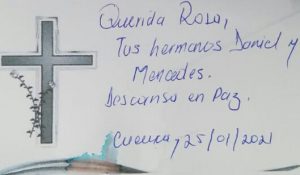 Querida Rosa,
Tus hermanos Daniel y
Mercedes.
Descansa en Paz.
Cuenca, 25/01/2021